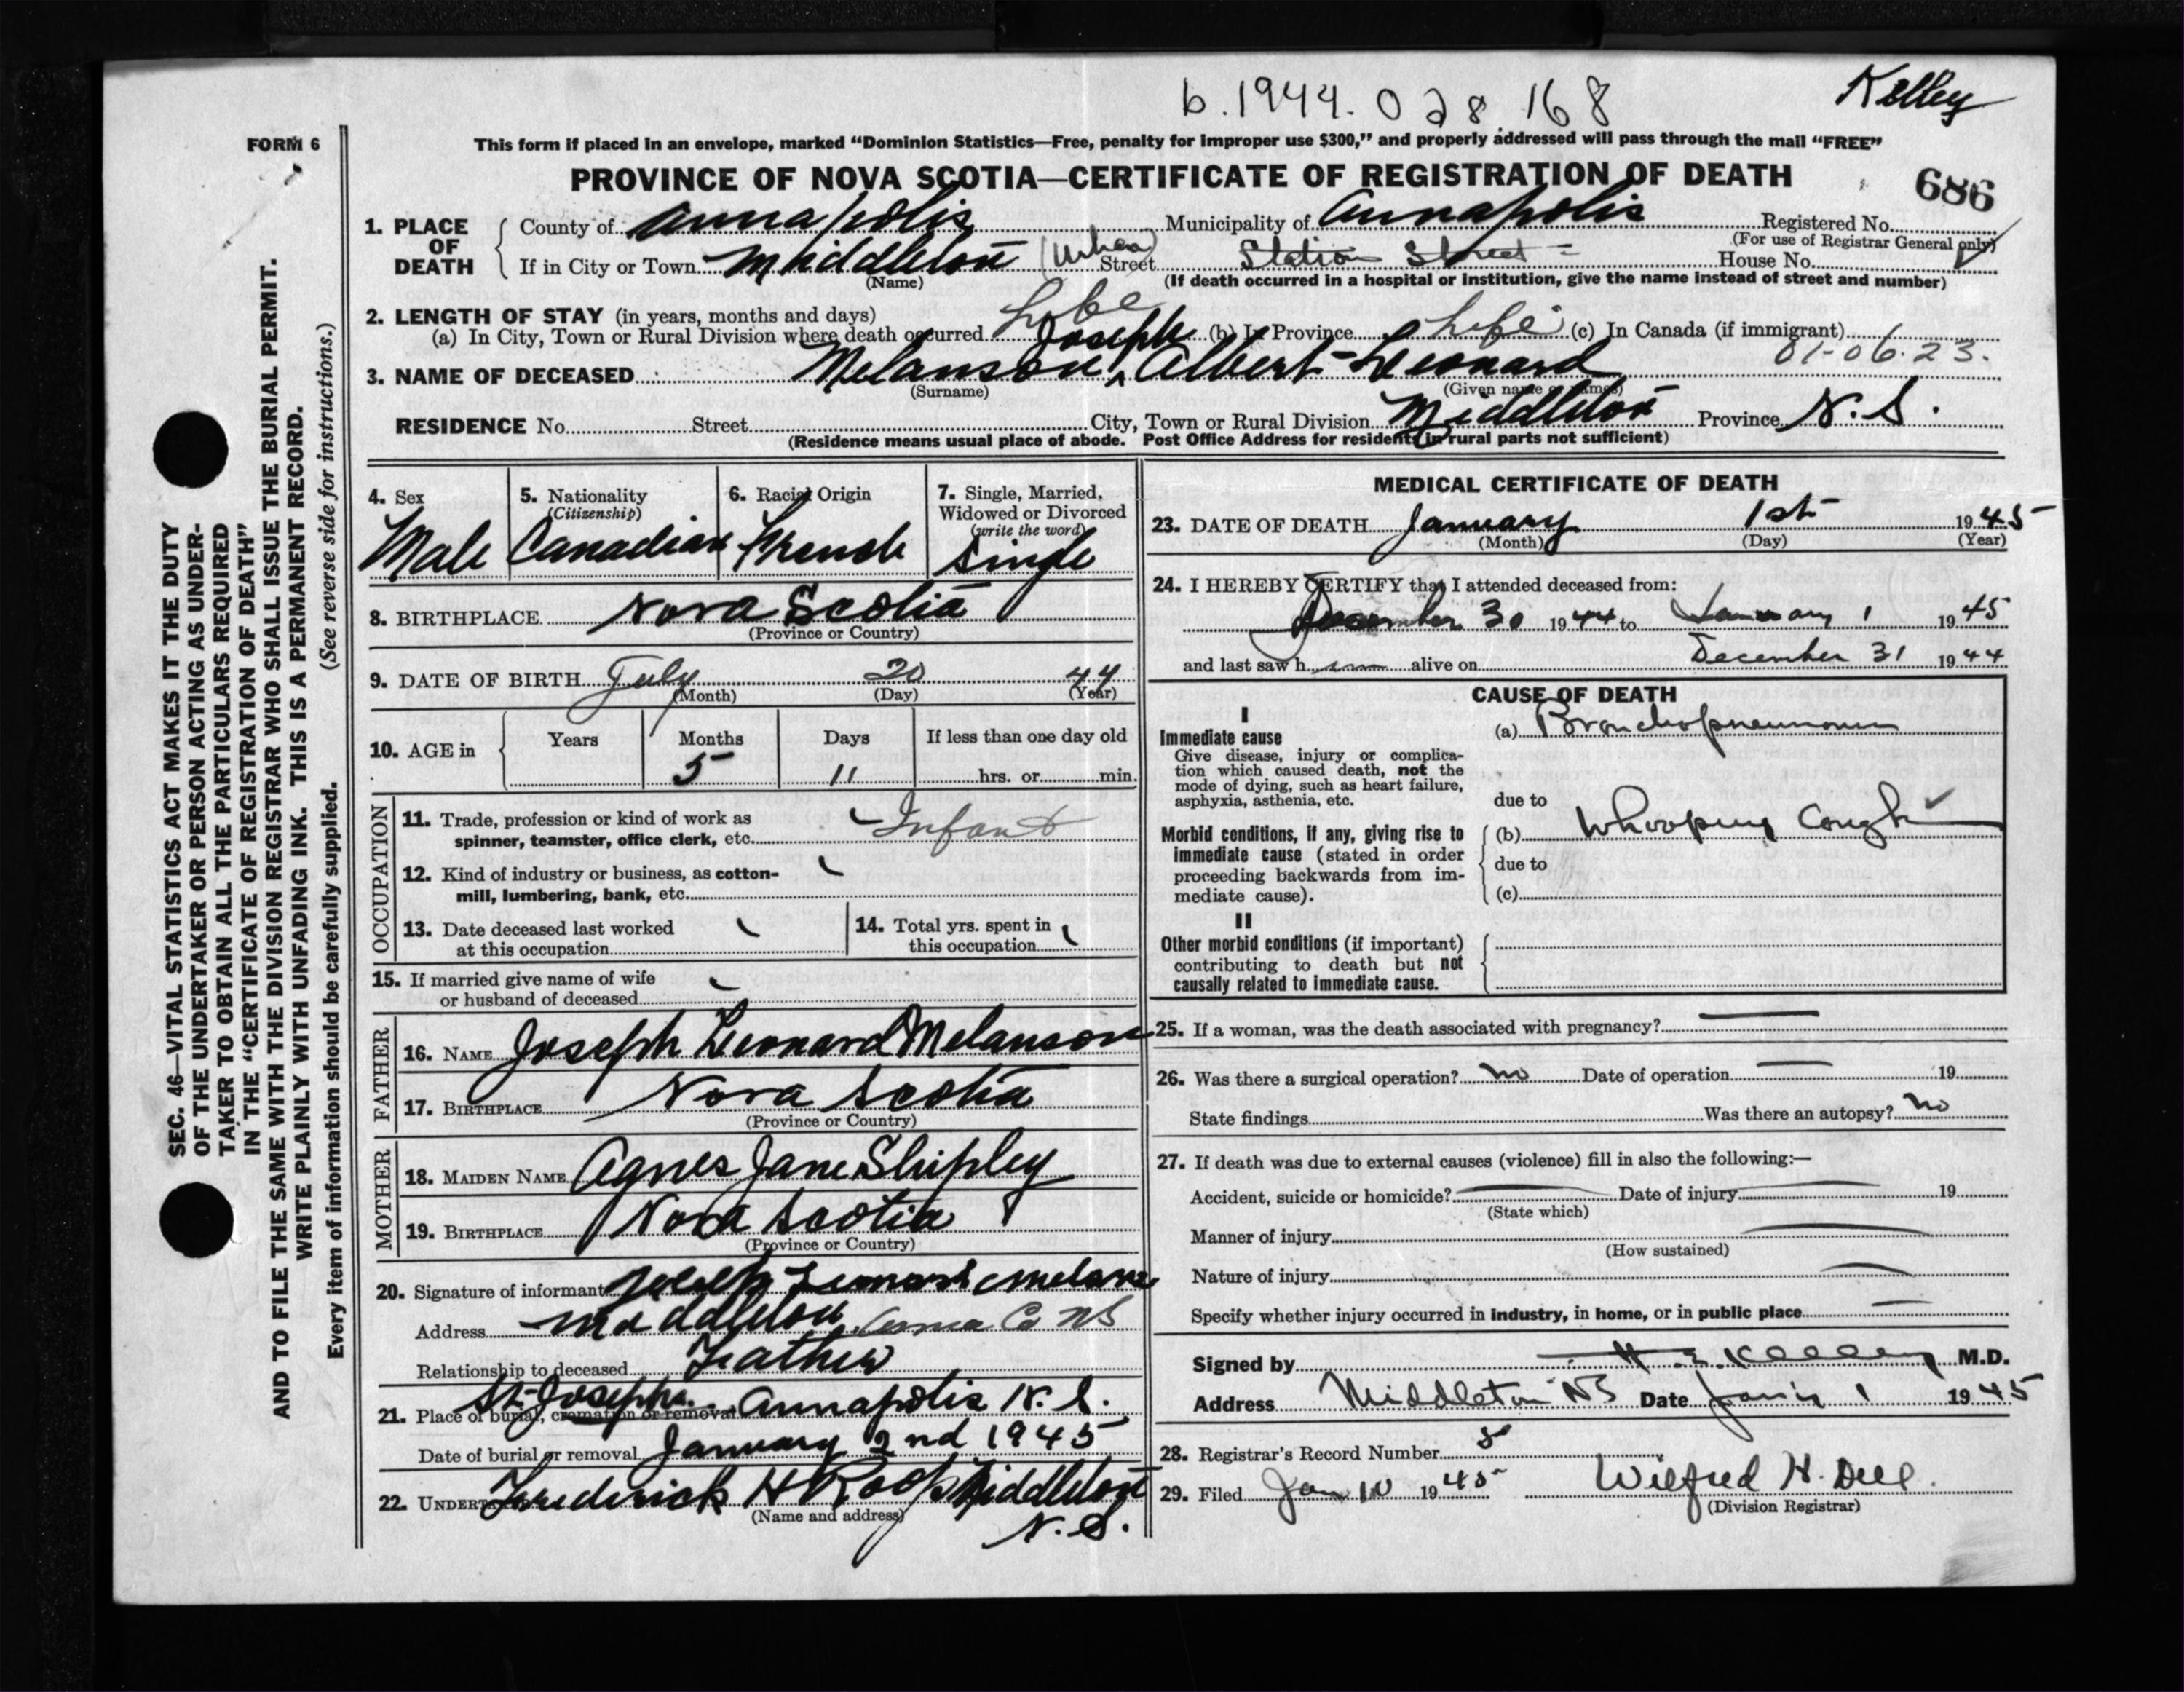 b. 1944. 028 168
Kelley
FORM 6
This form if placed in an envelope, marked “Dominion Statistics—Free, penalty for improper use $300,” and properly addressed will pass through the mail “FREE”
PROVINCE OF NOVA SCOTIA—CERTIFICATE OF REGISTRATION OF DEATH
686
1. PLACE OF DEATH
County of Annapolis Municipality of Annapolis Registered No.
(For use of Registrar General only)
If in City or Town Middleton (Urban) Street Station Street House No.
(Name) (If death occurred in a hospital or institution, give the name instead of street and number)
2. LENGTH OF STAY (in years, months and days)
(a) In City, Town or Rural Division where death occurred Life (b) In Province Life (c) In Canada (if immigrant)
01-06.23.
Joseph
3. NAME OF DECEASED Melanson, Albert-Leonard
(Surname) (Given name or names)
RESIDENCE No. Street City, Town or Rural Division Middleton Province N. S.
(Residence means usual place of abode. Post Office Address for residents in rural parts not sufficient)
4. Sex
Male
5. Nationality
(Citizenship)
Canadian
6. Racial Origin
French
7. Single, Married, Widowed or Divorced
(write the word)
Single
8. BIRTHPLACE Nova Scotia
(Province or Country)
9. DATE OF BIRTH July 20 44
(Month) (Day) (Year)
10. AGE in Years Months Days If less than one day old
5 11 hrs. or min.
OCCUPATION
11. Trade, profession or kind of work as Infant
spinner, teamster, office clerk, etc.
12. Kind of industry or business, as cotton-
mill, lumbering, bank, etc.
13. Date deceased last worked
at this occupation
14. Total yrs. spent in
this occupation
15. If married give name of wife
or husband of deceased
FATHER
16. NAME Joseph Leonard Melanson
17. BIRTHPLACE Nova Scotia
(Province or Country)
MOTHER
18. MAIDEN NAME Agnes Jane Shipley
19. BIRTHPLACE Nova Scotia
(Province or Country)
20. Signature of informant Joseph Leonard Melans
Address Middleton Anna Co NS
Relationship to deceased Father
21. Place of burial, cremation or removal St. Josephs Annapolis N. S.
Date of burial or removal January 2nd 1945
22. UNDERTAKER Frederick H Roop Middleton
(Name and address) N. S.
MEDICAL CERTIFICATE OF DEATH
23. DATE OF DEATH January 1st 1945
(Month) (Day) (Year)
24. I HEREBY CERTIFY that I attended deceased from:
December 30 1944 to January 1 1945
and last saw him alive on December 31 1944
CAUSE OF DEATH
I
Immediate cause
Give disease, injury or complica-
tion which caused death, not the
mode of dying, such as heart failure,
asphyxia, asthenia, etc.
(a) Bronchopneumonia
due to
Morbid conditions, if any, giving rise to
immediate cause (stated in order
proceeding backwards from im-
mediate cause).
(b) Whooping Cough
due to
(c)
II
Other morbid conditions (if important)
contributing to death but not
causally related to immediate cause.
25. If a woman, was the death associated with pregnancy?
26. Was there a surgical operation? no Date of operation 19
State findings Was there an autopsy? no
27. If death was due to external causes (violence) fill in also the following:—
Accident, suicide or homicide? Date of injury 19
(State which)
Manner of injury
(How sustained)
Nature of injury
Specify whether injury occurred in industry, in home, or in public place
Signed by H. E. Kelley M.D.
Address Middleton NS Date Jan'y 1 1945
28. Registrar's Record Number
29. Filed Jan 10 1945 Wilfred H. Dell.
(Division Registrar)
SEC. 46—VITAL STATISTICS ACT MAKES IT THE DUTY
OF THE UNDERTAKER OR PERSON ACTING AS UNDER-
TAKER TO OBTAIN ALL THE PARTICULARS REQUIRED
IN THE “CERTIFICATE OF REGISTRATION OF DEATH”
AND TO FILE THE SAME WITH THE DIVISION REGISTRAR WHO SHALL ISSUE THE BURIAL PERMIT.
WRITE PLAINLY WITH UNFADING INK. THIS IS A PERMANENT RECORD.
Every item of information should be carefully supplied. (See reverse side for instructions.)